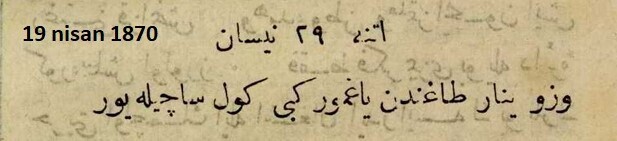 19 nisan 1870
اتنه ٢٩ نيسان
وزو ينار طاغندن ياغمور كبى كول ساچيله يور